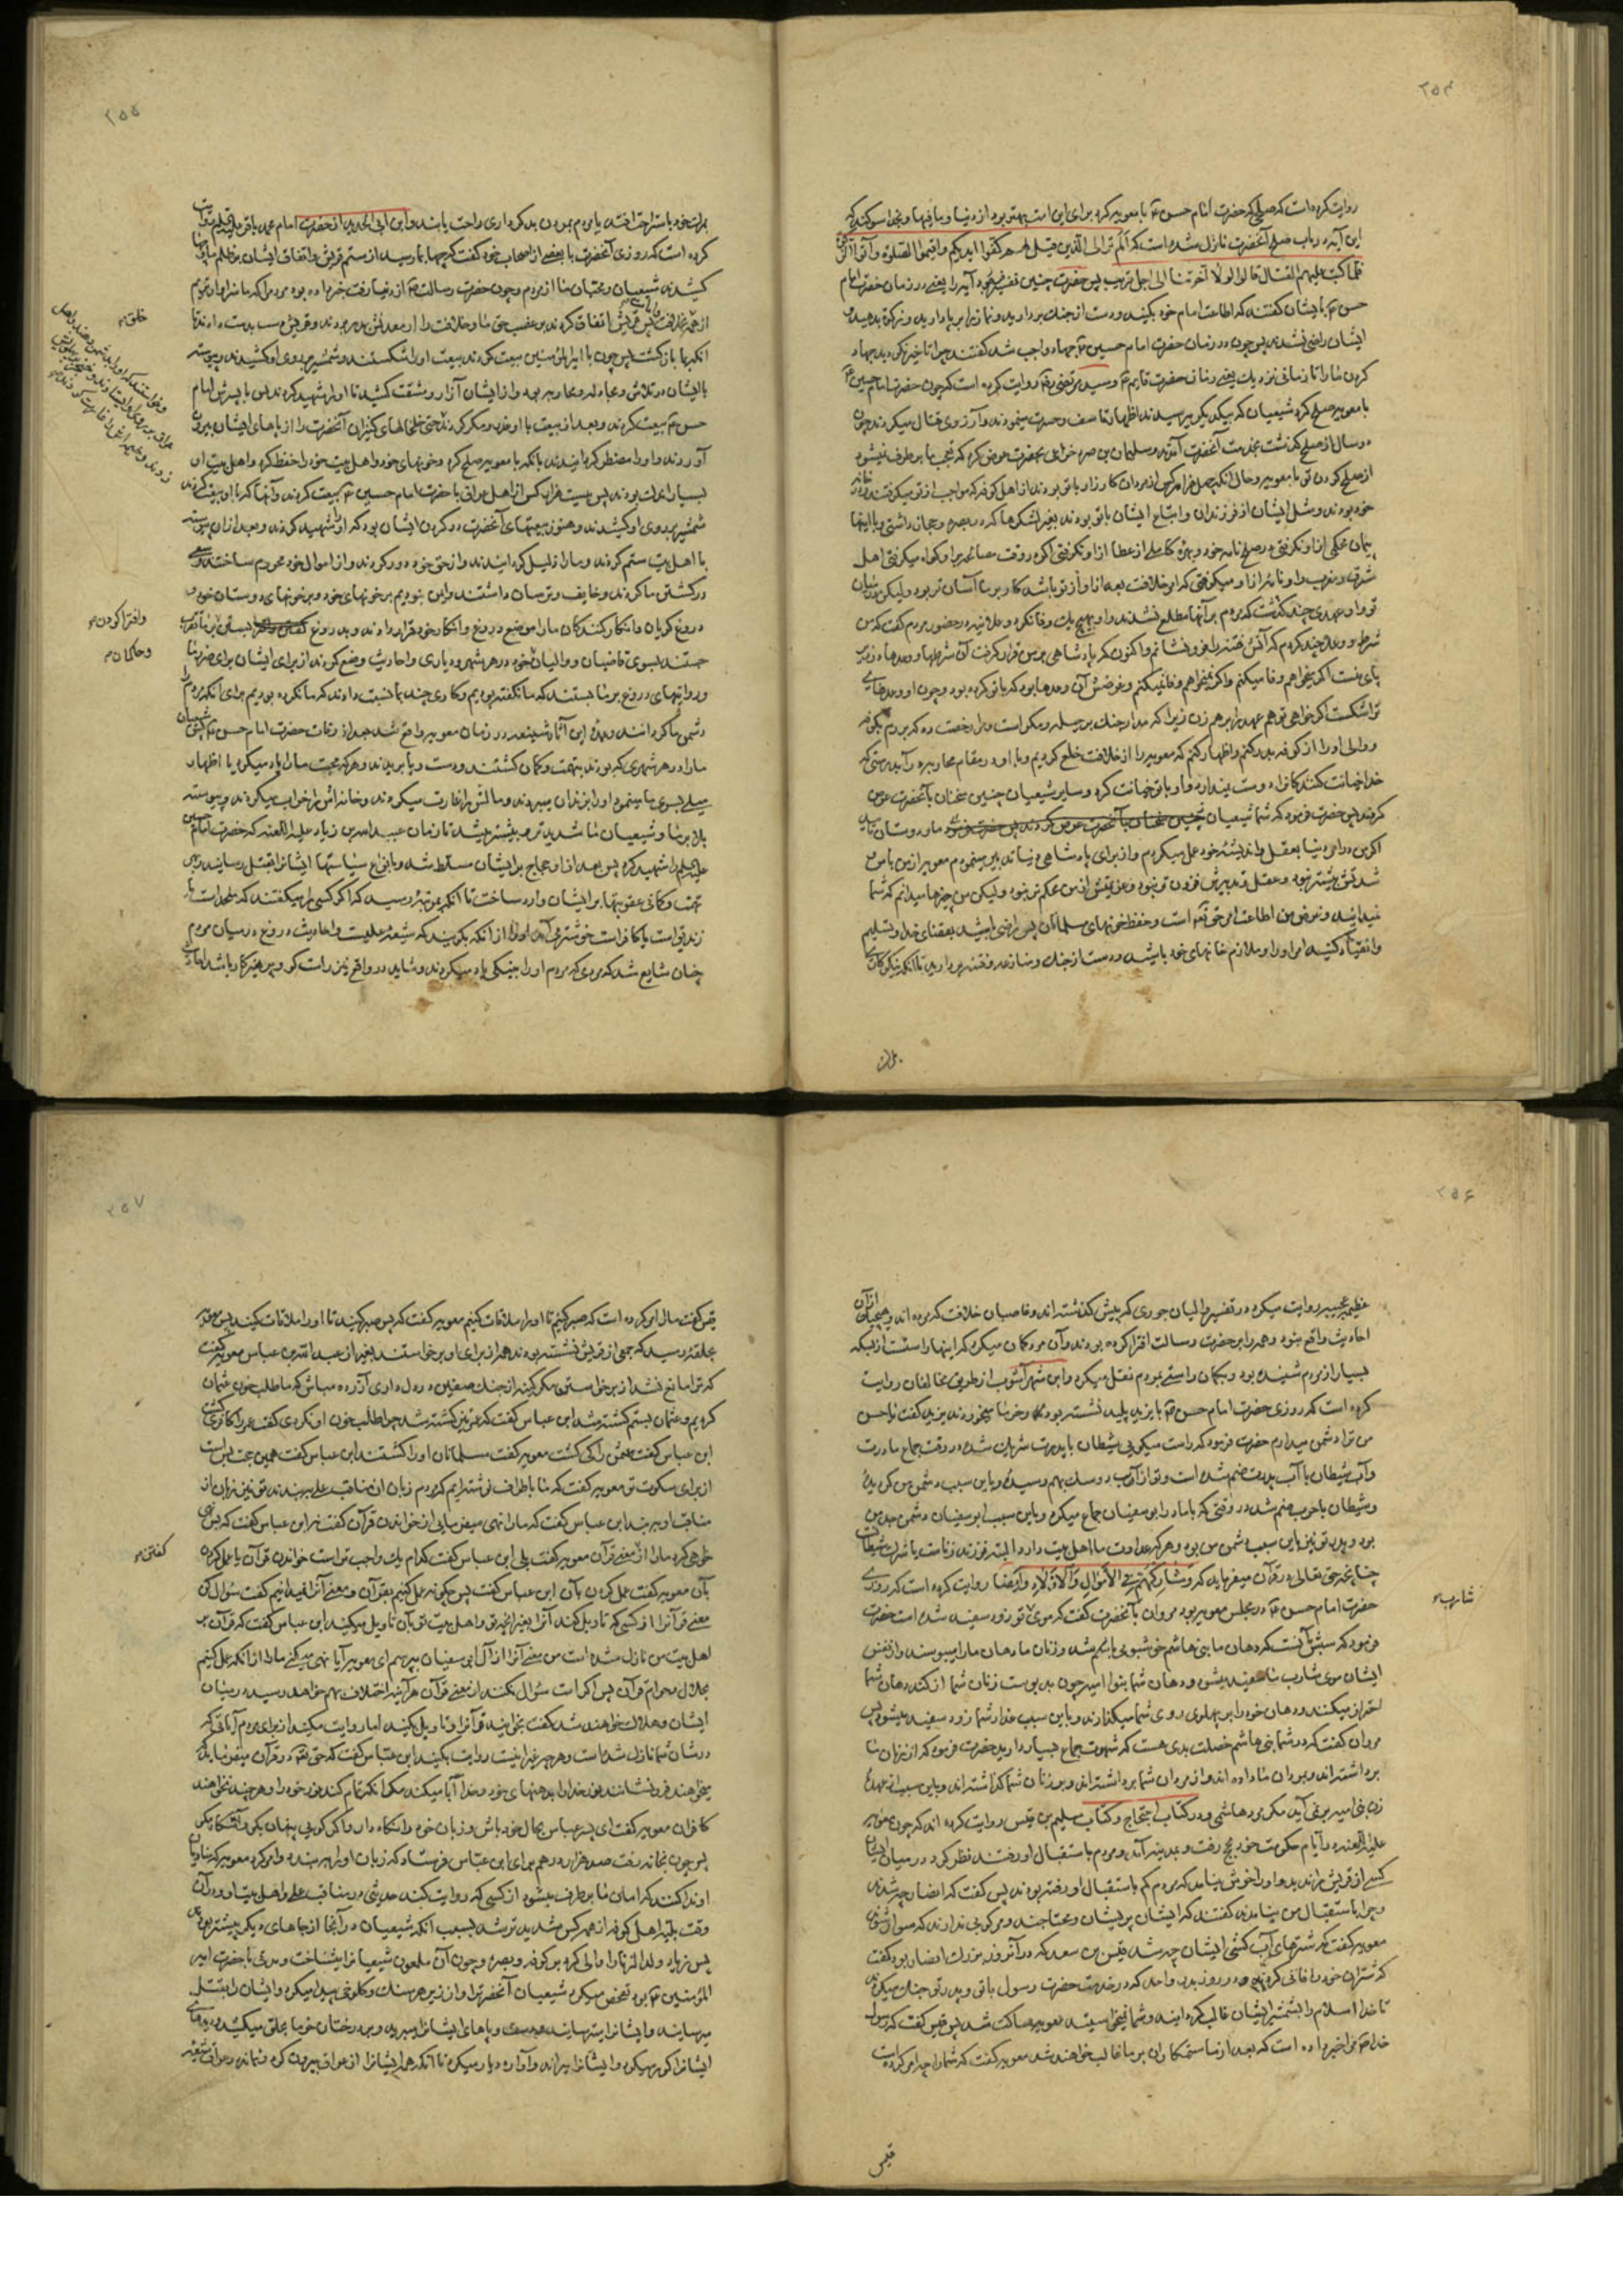 ۲۵۴
روایت کرده است که صلحی که حضرت امام حسن ع با معویه کرد برای این امت بهتر بود از دنیا و ما فیها و بخدا سوکند که
این آیه در باب صلح آنحضرت نازل شده است که الم تر الی الذین قیل لهم کفوا ایدیکم واقیموا الصلوة وآتوا الزکوة
فلما کتب علیهم القتال قالوا لولا اخرتنا الی اجل قریب پس حضرت چنین تفسیر فرمود آیه را یعنی در زمان حضرت امام
حسن ع بایشان کفتند که اطاعت امام خود بکنید و دست از جنک بردارید و نماز را برپا دارید و زکوة بدهید
ایشان راضی نشدند پس چون در زمان حضرت امام حسین ع جهاد واجب شد کفتند چرا تاخیر نکردید جهاد
کردن ما را تا زمانی نزدیک یعنی زمان حضرت قایم ع و سید مرتضی روایت کرده است که چون حضرت امام حسن ع
با معویه صلح کرد شیعیان که بیکدیکر میرسیدند اظهار تاسف و حسرت مینمودند و آرزوی قتال میکردند چون
دو سال از صلح کذشت بخدمت آنحضرت آمدند و سلیمان بن صرد خزاعی بحضرت عرض کرد که تعجب ما برطرف نمیشود
از صلح کردن تو با معویه و حال آنکه چهل هزار کس از مردان کارزار با تو بودند از اهل کوفه که مواجب از تو میکرفتند و در خانهای
خود بودند و مثل ایشان از فرزندان و اتباع ایشان با تو بودند بغیر لشکرها که در بصره و حجاز داشتی و با اینها
پیمان محکمی از او نکرفتی در صلح نامه خود و بهره کاملی از عطا از او نکرفتی اکر در وقت مصالحه بر او کواه میکرفتی اهل
شرق و مغرب را و نامه از او میکرفتی که امر خلافت بعد از او از تو باشد کار بر ما آسان تر بود ولیکن در میان
تو و او عهدی چند کذشت که مردم بر آنها مطلع نشدند و او بهیچ یک وفا نکرد و علانیه در حضور مردم کفت که من
شرط و وعده چند کردم که آتش فتنه را فرو نشانم و اکنون که پادشاهی بر من قرار کرفت آن شرطها و وعدها در زیر
پای منست اکر میخواهم وفا میکنم و اکر نمیخواهم وفا نمیکنم و غرضش آن وعدها بود که با تو کرده بود و چون او وعدهای
ترا شکست اکر خواهی تو هم عهد را بر هم زن زیرا که مدار جنک بر حیله و مکر است و مرا رخصت ده که بروم بکوفه
و والی او را از کوفه بدر کنم و اظهار کنم که معویه را از خلافت خلع کردیم و با او در مقام محاربه درآیید بدرستی که
خدا خیانت کنندکانرا دوست نمیدارد و او با تو خیانت کرد و سایر شیعیان چنین سخنان بآنحضرت عرض
کردند پس حضرت فرمود که شما شیعیان ما و دوستان مایید
اکر من در امر دنیا بعقل و اندیشه خود عمل میکردم و از برای پادشاهی دنیا تدبیر مینمودم معویه از من باس و
شدتش بیشتر نبود و عقل و تدبیرش فزون تر نبود و عزیمتش از من محکم تر نبود ولیکن من چیزها میدانم که شما
نمیدانید و غرض من اطاعت امر حق تعالی است و حفظ خونهای مسلمانان پس راضی باشید بقضای خدا و تسلیم
و انقیاد کنید امر او را و ملازم خانهای خود باشید و دست از جنک و منازعه و فتنه بردارید تا آنکه نیکوکاران
۲۵۵
بمرک خود باستراحت افتند یا مردم بمردن بدکرداری راحت یابند و ابن ابی الحدید از حضرت امام محمد باقر علیه السلم روایت
کرده است که روزی آنحضرت با بعضی از اصحاب خود کفت که چها بما رسید از ستم قریش و اتفاق ایشان بر ظلم ما و چها
کشیدند شیعیان و محبان ما از مردم و چون حضرت رسالت ص از دنیا رفت خبر داده بود مردم را که ما سزاوارتریم
از همه بخلافت پس قریش اتفاق کردند بر غصب حق ما و خلافت را از معدنش بدر بردند و قریش دست بدست دادند تا
آنکه بما بازکشت پس چون با امیر المؤمنین بیعت کردند بیعت او را شکستند و شمشیر بروی او کشیدند و پیوسته
با ایشان در تلاش و مجادله و محاربه بود و از ایشان آزار و مشقت کشید تا او را شهید کردند پس با پسرش امام
حسن ع بیعت کردند و بعد از بیعت با او غدر و مکر کردند حتی خلخالهای کنیزان آنحضرت را از پاهای ایشان بیرون
آوردند و او را مضطر کردانیدند تا آنکه با معویه صلح کرد و خونهای خود و اهل بیت خود را حفظ کرد و اهل بیت او
بسیار اندک بودند پس بیست هزار کس از اهل عراق با حضرت امام حسین ع بیعت کردند و آنها که با او بیعت کردند
شمشیر بروی او کشیدند و هنوز بیعتهای آنحضرت در کردن ایشان بود که او را شهید کردند و بعد از آن پیوسته
با اهل بیت ستم کردند و ما را ذلیل کردانیدند و از حق خود دور کردند و از اموال خود محروم ساختند و سعی
در کشتن ما کردند و خایف و ترسان داشتند و ایمن نبودیم بر خونهای خود و بر خونهای دوستان خود و
دروغ کویان و انکار کنندکان ما را موضع دروغ و انکار خود قرار دادند و بدروغ بستن بر ما تقرب
جستند بسوی قاضیان و والیان خود در هر شهر و دیاری و احادیث وضع کردند از برای ایشان برای ضرر ما
و روایتهای دروغ بر ما بستند که ما نکفته بودیم و کاری چند بما نسبت دادند که ما نکرده بودیم برای آنکه مردم را
دشمن ما کردانند و عمده این آثار شنیعه در زمان معویه واقع شد بعد از وفات حضرت امام حسن ع پس شیعیان
ما را در هر شهری که بودند بتهمت و کمان کشتند و دست و پا بریدند و هر که محبت ما را یاد میکرد یا اظهار
میلی بسوی ما مینمود او را بزندان میبردند و مالش را غارت میکردند و خانه اش را خراب میکردند و پیوسته
بلا بر ما و شیعیان ما شدید تر و بیشتر میشد تا زمان عبید الله بن زیاد علیه اللعنه که حضرت امام حسین
علیه السلم را شهید کرد پس بعد از او حجاج بر ایشان مسلط شد و بانواع سیاستها ایشانرا بقتل رسانید و بهر
تهمت و کمانی عقوبتها بر ایشان وارد ساخت تا آنکه بمرتبه رسید که اکر کسی را میکفتند که ملحد است یا
زندیق است یا کافر است خوشتر می آمد او را از آنکه بکویند که شیعه علیست و احادیث دروغ در میان مردم
چنان شایع شد که مردی که مردم او را بنیکی یاد میکردند و شاید در واقع نیز راست کو و پرهیزکار باشد احادیث
خلق
و افترا کردن
و حاکمان
۲۵۶
عظیمه عجیبه روایت میکرد در تفضیل والیان جوری که پیش کذشته اند و غاصبان خلافت که بوده اند و هیچیک از آن
احادیث واقع نبود و همه را بر حضرت رسالت افترا کرده بودند و آن مرد کمان میکرد که اینها راستست از بسکه
بسیار از مردم شنیده بود و بکمان راستی بمردم نقل میکرد و ابن شهر آشوب از طریق مخالفان روایت
کرده است که روزی حضرت امام حسن ع با یزید پلید نشسته بود و خرما میخوردند یزید کفت یا حسن
من ترا دشمن میدارم حضرت فرمود که راست میکویی شیطان با پدرت شریک شده در وقت جماع مادرت
و آب شیطان با آب پدرت ضم شده است و تو از آن دو آب بهم رسیده و باین سبب دشمن من کردیده
و شیطان با حرب ضم شد در وقتی که با مادر ابو سفیان جماع میکرد و باین سبب ابو سفیان دشمن جد من
بود و پدر تو نیز باین سبب دشمن من بود و هر که عداوت ما اهل بیت دارد البته فرزند زناست یا شریک شیطان
چنانچه حق تعالی در قرآن میفرماید که وشارکهم فی الاموال والاولاد و ایضا روایت کرده است که روزی
حضرت امام حسن ع در مجلس معویه بود مروان بآنحضرت کفت که موی تو زود سفید شده است حضرت
فرمود که سببش آنست که دهان ما بنی هاشم خوشبوی باشد و زنان ما دهان ما را میبوسند و از نفس
ایشان موی شارب ما سفید میشود و دهان شما بنو امیه چون بدبوست زنان شما از کند دهان شما
احتراز میکنند و دهان خود را بر پهلوی روی شما میکذارند و باین سبب عذار شما زود سفید میشود پس
مروان کفت که در شما بنی هاشم خصلت بدی هست که شهوت جماع بسیار دارید حضرت فرمود که از زنان ما
برداشته اند و بمردان ما داده اند و از مردان شما برداشته اند و بر زنان شما کذاشته اند و باین سبب از عهده
زن بنی امیه بر نمی آید مکر مرد هاشمی و در کتاب احتجاج و کتاب سلیم بن قیس روایت کرده اند که چون معویه
علیه اللعنه در ایام حکومت خود بحج رفت و بمدینه آمد و مردم باستقبال او رفتند نظر کرد در میان ایشان
کسی از قریش را ندید و او را خوش نیامد که مردم کم باستقبال او رفته بودند پس کفت که انصار چه شدند
و چرا باستقبال من نیامدند کفتند که ایشان پریشان و محتاجند و مرکوبی ندارند که سوار شوند
معویه کفت که شترهای آب کش ایشان چه شد قیس بن سعد که در آنروز بزرک انصار بود کفت
که شتران خود را فانی کردند در روز بدر و احد که در خدمت حضرت رسول با تو و پدر تو جنک میکردند
تا خدا اسلام را بشمشیر ایشان غالب کردانید و شما نمیخواستید معویه ساکت شد پس قیس کفت که رسول
خدا ص ما را خبر داده است که بعد از ما ستمکاران بر ما غالب خواهند شد معویه کفت که شما را چه امر کرده است
شارب
قیس
۲۵۷
قیس کفت ما را امر کرده است که صبر کنیم تا او را ملاقات کنیم معویه کفت که پس صبر کنید تا او را ملاقات کنید پس معویه
بحلقه رسید که جمعی از قریش نشسته بودند همه از برای او برخاستند بغیر از عبد الله بن عباس معویه کفت
که ترا مانع نشد از برخواستن مکر کینه از جنک صفین در دل داری آزرده مباش که ما طلب خون عثمان
کردیم و عثمان بستم کشته شد ابن عباس کفت که عمر نیز کشته شد چرا طلب خون او نکردی کفت عمر را کافری کشت
ابن عباس کفت عثمان را کی کشت معویه کفت مسلمانان او را کشتند ابن عباس کفت همین حجت بس است
از برای سکوت تو معویه کفت که ما باطراف نوشته ایم که مردم زبان از مناقب علی ببندند تو نیز زبان از
مناقب او ببند ابن عباس کفت که ما را نهی میفرمایی از خواندن قرآن کفت نه ابن عباس کفت که پس نهی
خواهی کرد ما را از معنی قرآن معویه کفت بلی ابن عباس کفت کدام یک واجب تر است خواندن قرآن یا عمل کردن
بآن معویه کفت عمل کردن بآن ابن عباس کفت پس چکونه عمل کنیم بقرآن و معنی آنرا ندانیم کفت سؤال کن
معنی قرآنرا از کسی که تاویل کند آنرا بغیر آنچه تو و اهل بیت تو بآن تاویل میکنید ابن عباس کفت که قرآن بر
اهل بیت من نازل شده است من معنی آنرا از آل ابی سفیان بپرسم ای معویه آیا نهی میکنی ما را از آنکه عمل کنیم
بحلال و حرام قرآن پس اکر امت سؤال نکنند از معنی قرآن هر آینه اختلاف بهم خواهد رسید در میان
ایشان و هلاک خواهند شد کفت بخوانید قرآنرا و تاویل بکنید اما روایت مکنید از برای مردم آیاتی که
در شان شما نازل شده است و هر چه غیر اینست روایت بکنید ابن عباس کفت که حق تعالی در قرآن میفرماید که
میخواهند فرو نشانند نور خدا را بدهنهای خود و خدا ابا میکند مکر آنکه تمام کند نور خود را و هر چند نخواهند
کافران معویه کفت ای پسر عباس بحال خود باش و زبان خود را نکاه دار و اکر کویی پنهان بکو و آشکارا مکن
پس چون بخانه رفت صد هزار درهم برای ابن عباس فرستاد که زبان او را ببندد و امر کرد معویه که منادیان
او ندا کنند که امان ما برطرف میشود از کسی که روایت کند حدیثی در مناقب علی و اهل بیت او و در آن
وقت بلیه اهل کوفه از همه کس شدید تر شد بسبب آنکه شیعیان در آنجا از جاهای دیکر بیشتر بودند
پس زیاد ولد الزنا را والی کرد بر کوفه و بصره و چون آن ملعون شیعیانرا میشناخت و مدتی با حضرت امیر
المؤمنین ع بود تفحص میکرد شیعیان آنحضرت را و از زیر هر سنک و کلوخی پیدا میکرد و ایشان را بقتل
میرسانید و ایشانرا میترسانید و دست و پاهای ایشانرا میبرید و بر درختان خرما بحلق میکشید و دیدهای
ایشانرا کور میکرد و ایشانرا میراند و آواره دیار میکرد تا آنکه همه ایشانرا از عراق بیرون کرد و نماند در عراق شیعه
کفتن